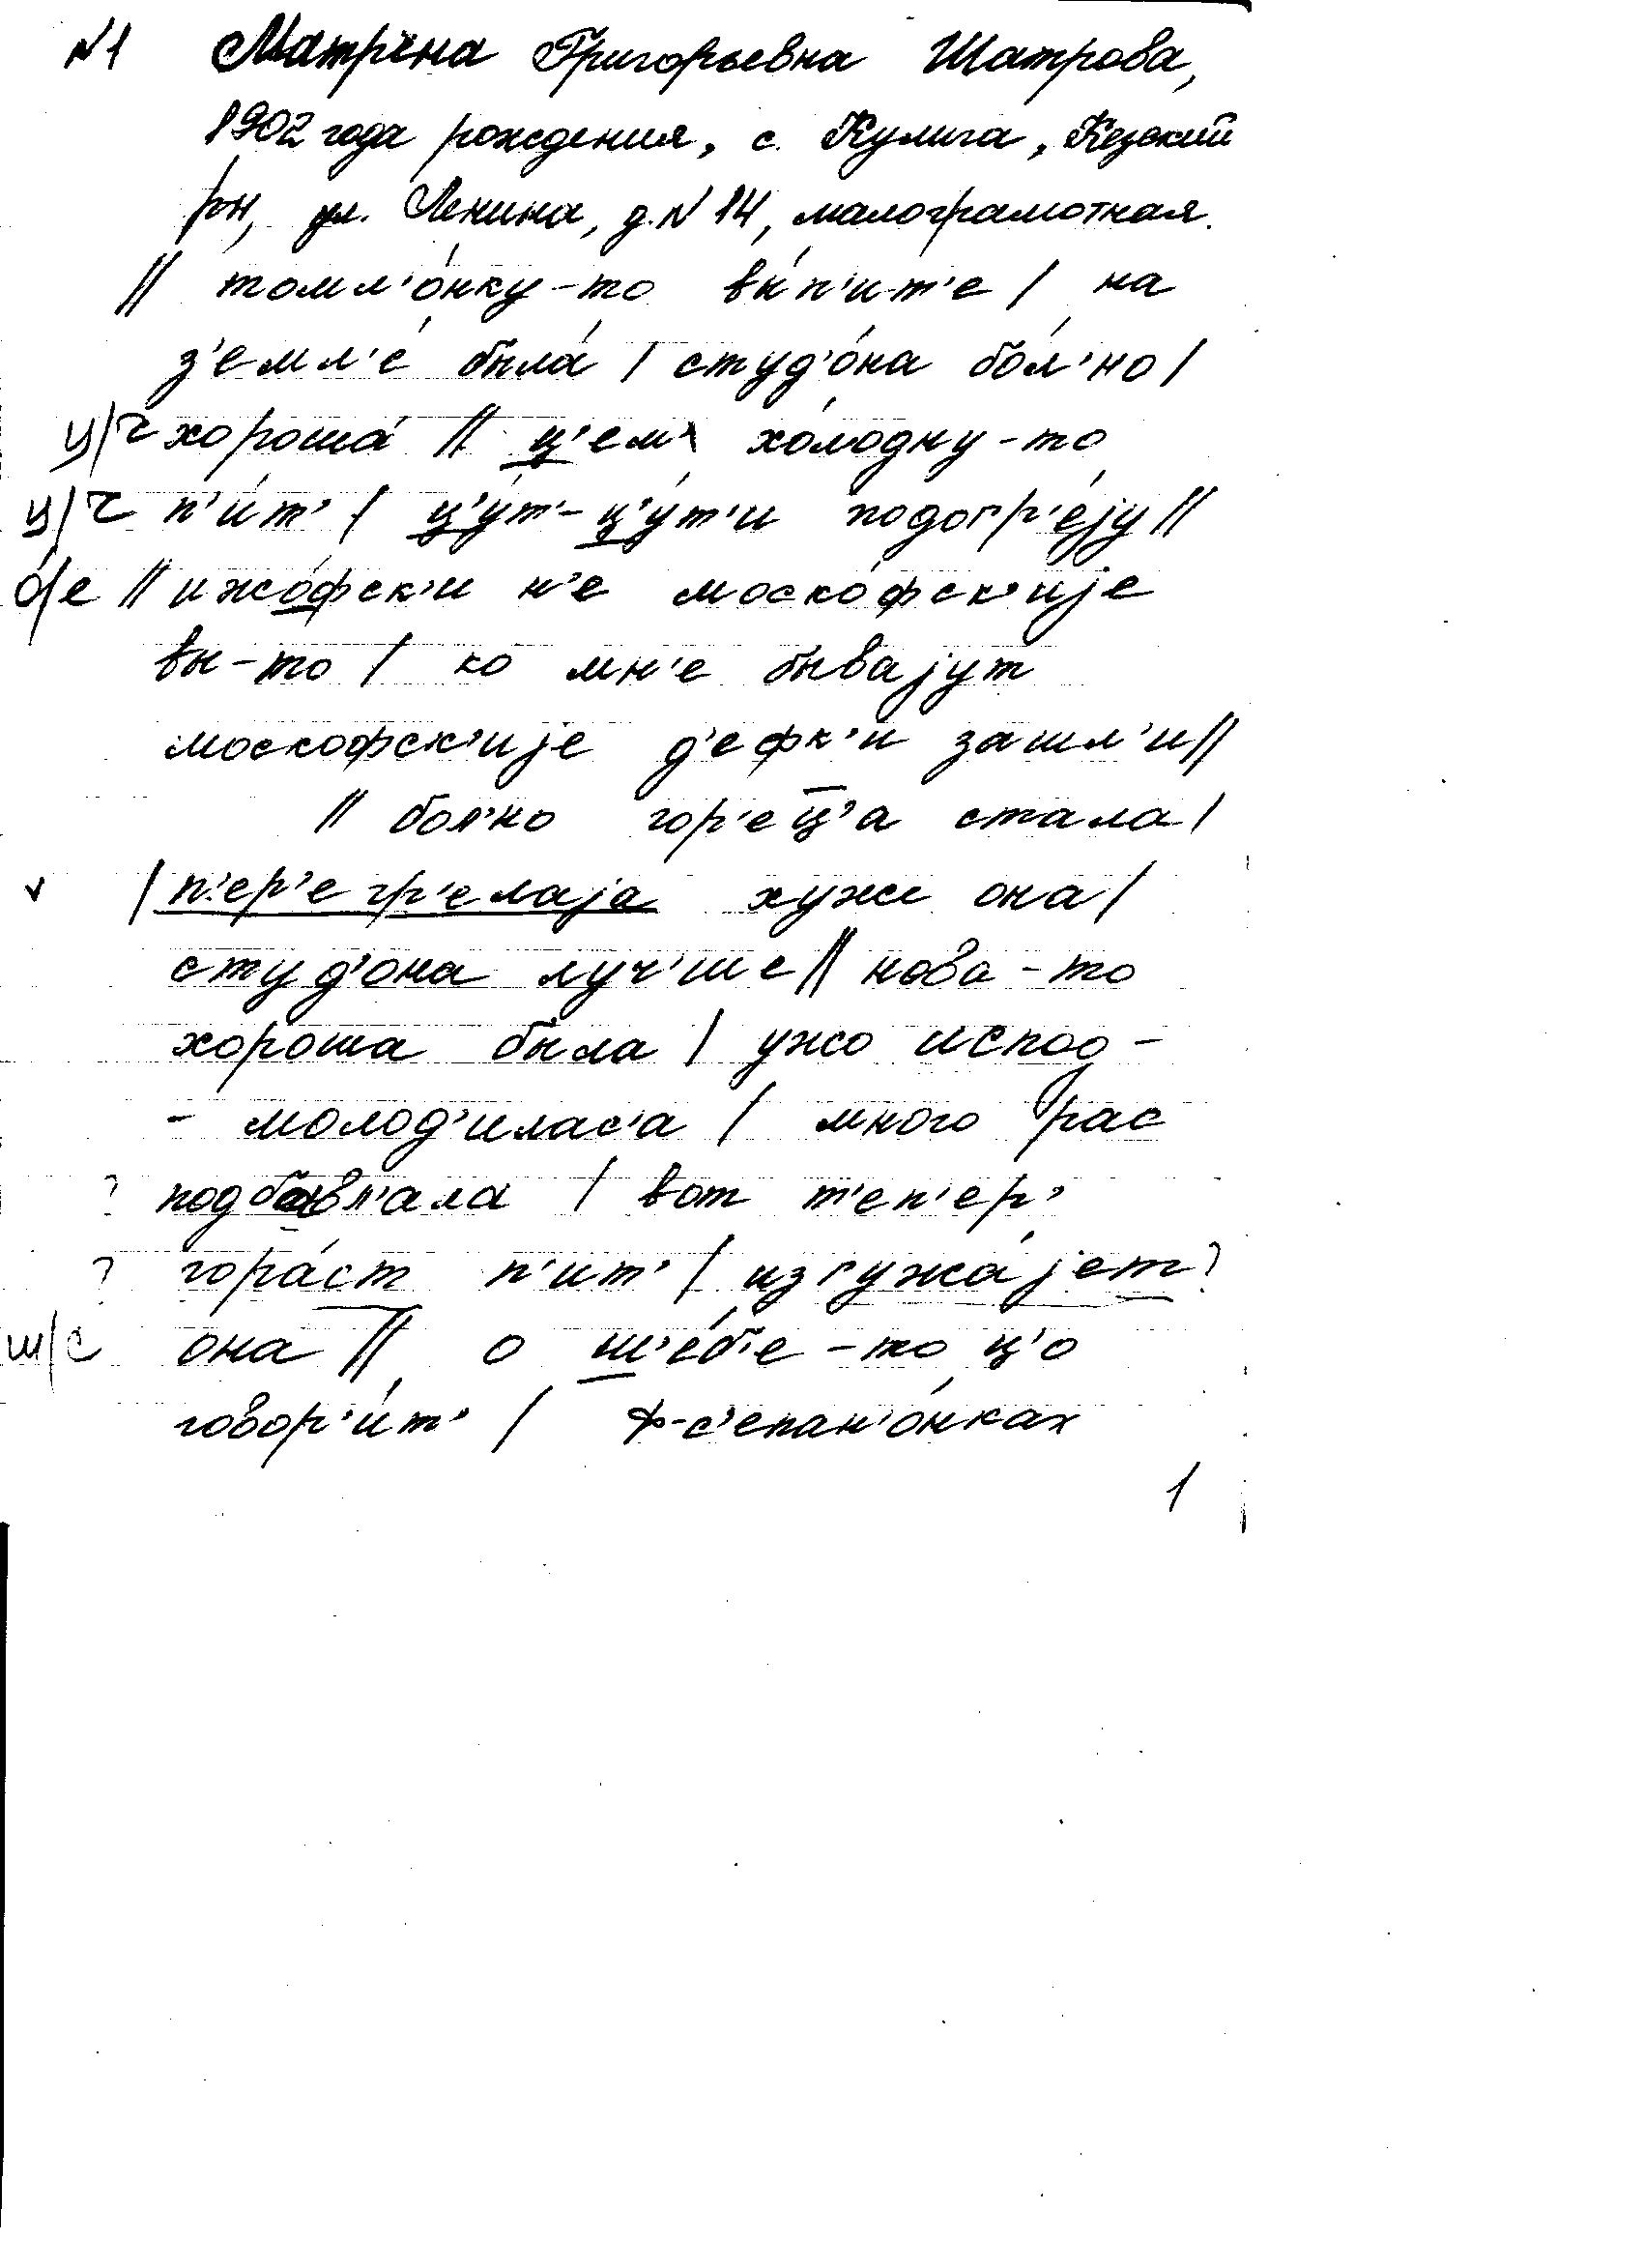 №1 Матрёна Григорьевна Шатрова,
1902 года рождения, с. Кулига, Кезский
рн, ул. Ленина, д. № 14, малограмотная.
|| томл'о́нку-то вы́п'ит'е / на
з'емл'е́ была́ / студ'о́на бо́л'но /
ц/ч хороша́ || ц'ем хо́лодну-то
ц/ч п'и́т' / ц'у́т'-ц'у́т'и подогр'е́jу ||
о́/е || ижо́фск'и н'е моско́фск'иjе
вы-то / ко мн'е бываjут
москофск'иjе д'ефк'и зашл'и ||
|| бол'но гор'ец'а стала /
v / п'ер'егр'елаjа хуже она /
студ'она луч'ше || нова-то
хороша была / ужо испод-
- молод'илас'а / много рас
? подбавл'ала / вот т'еп'ер'
? гора́ст п'ит' / изгужа́jет ?
ш/с она || о ш'е́б'е-то ц'о
говор'и́т' / ф-с'епан'о́нках
1